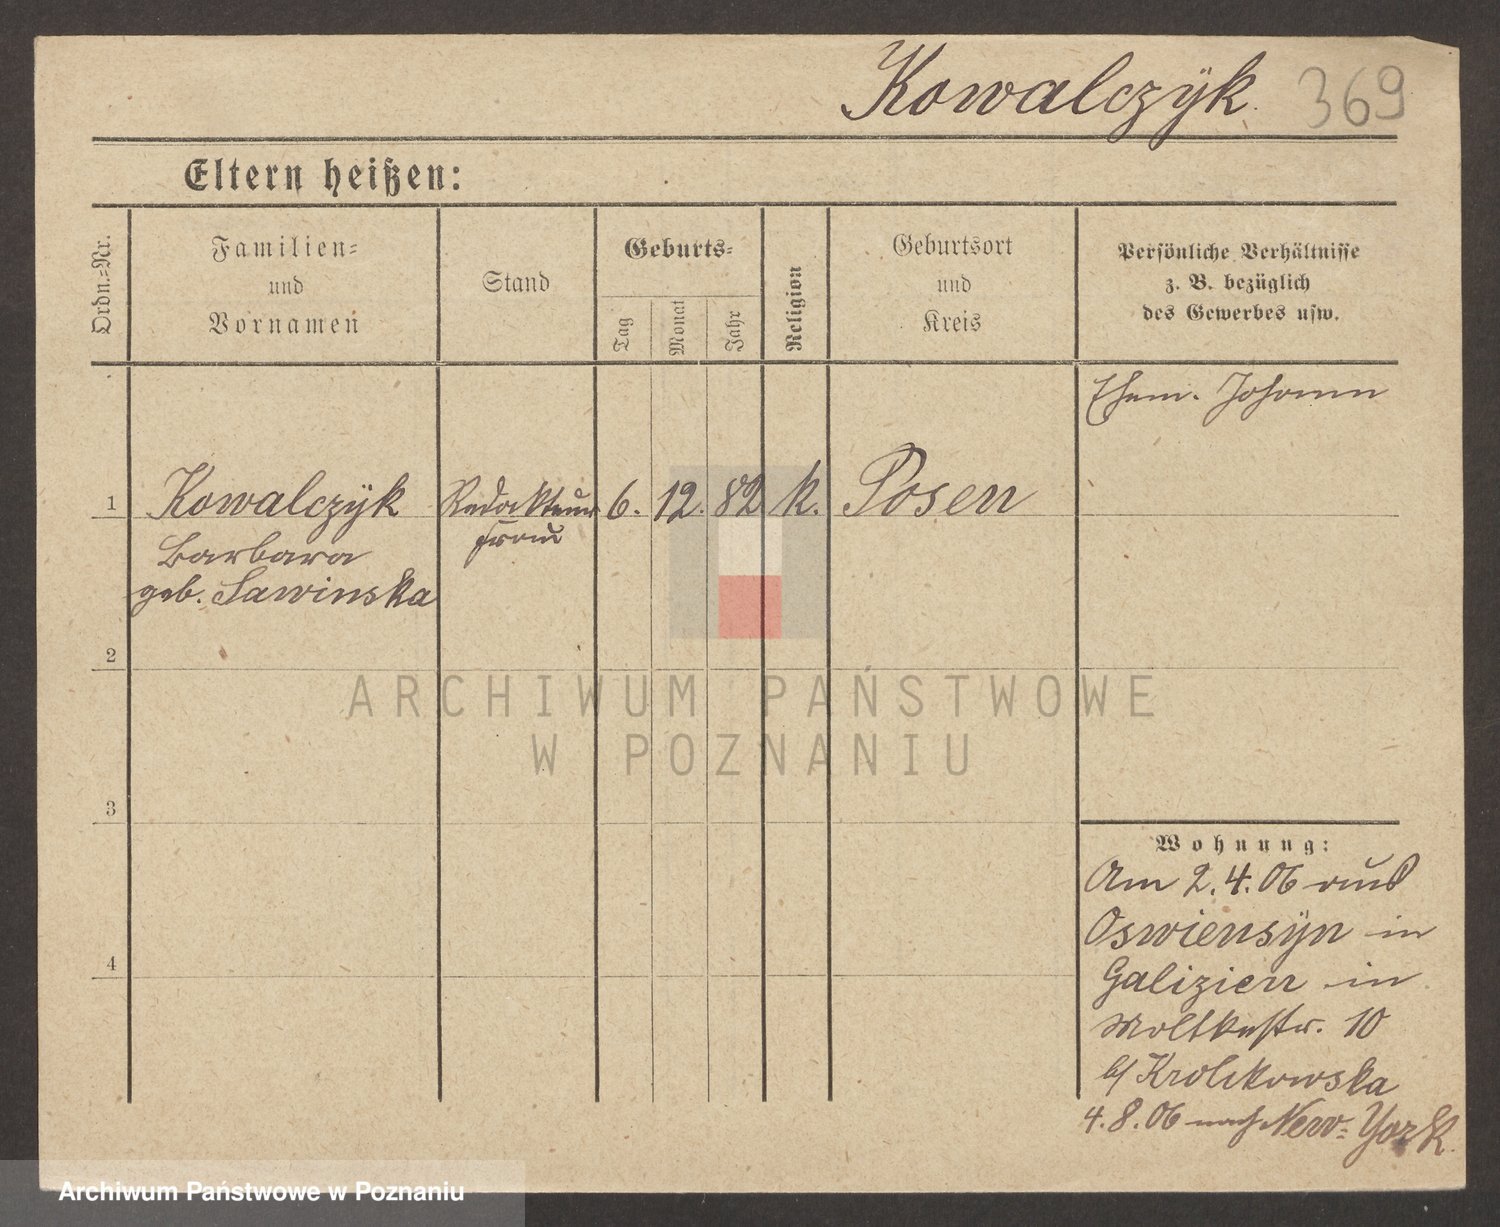 Kowalczÿk. 369
Eltern heißen:
Ordn.-Nr.
Familien-
und
Vornamen
Stand
Geburts-
Tag
Monat
Jahr
Religion
Geburtsort
und
Kreis
Persönliche Verhältnisse
z. B. bezüglich
des Gewerbes usw.
Ehem. Johann
1 Kowalczÿk Redakteur 6. 12. 82 k. Posen
frau
Barbara
geb. Sawinska
2
3
4
Wohnung:
Am 2.4.06 aus
Oswiensÿn in
Galizien in
Moltkestr. 10
b/ Krolikowska
4.8.06 nach New-York.
ARCHIWUM PAŃSTWOWE
W POZNANIU
Archiwum Państwowe w Poznaniu